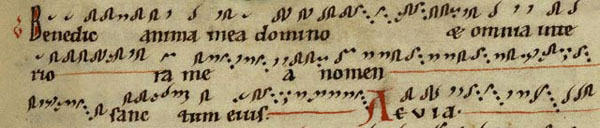 Benedic anima mea domino & omnia inte
rio ra me a nomen
sanc tum eius. Aevia.